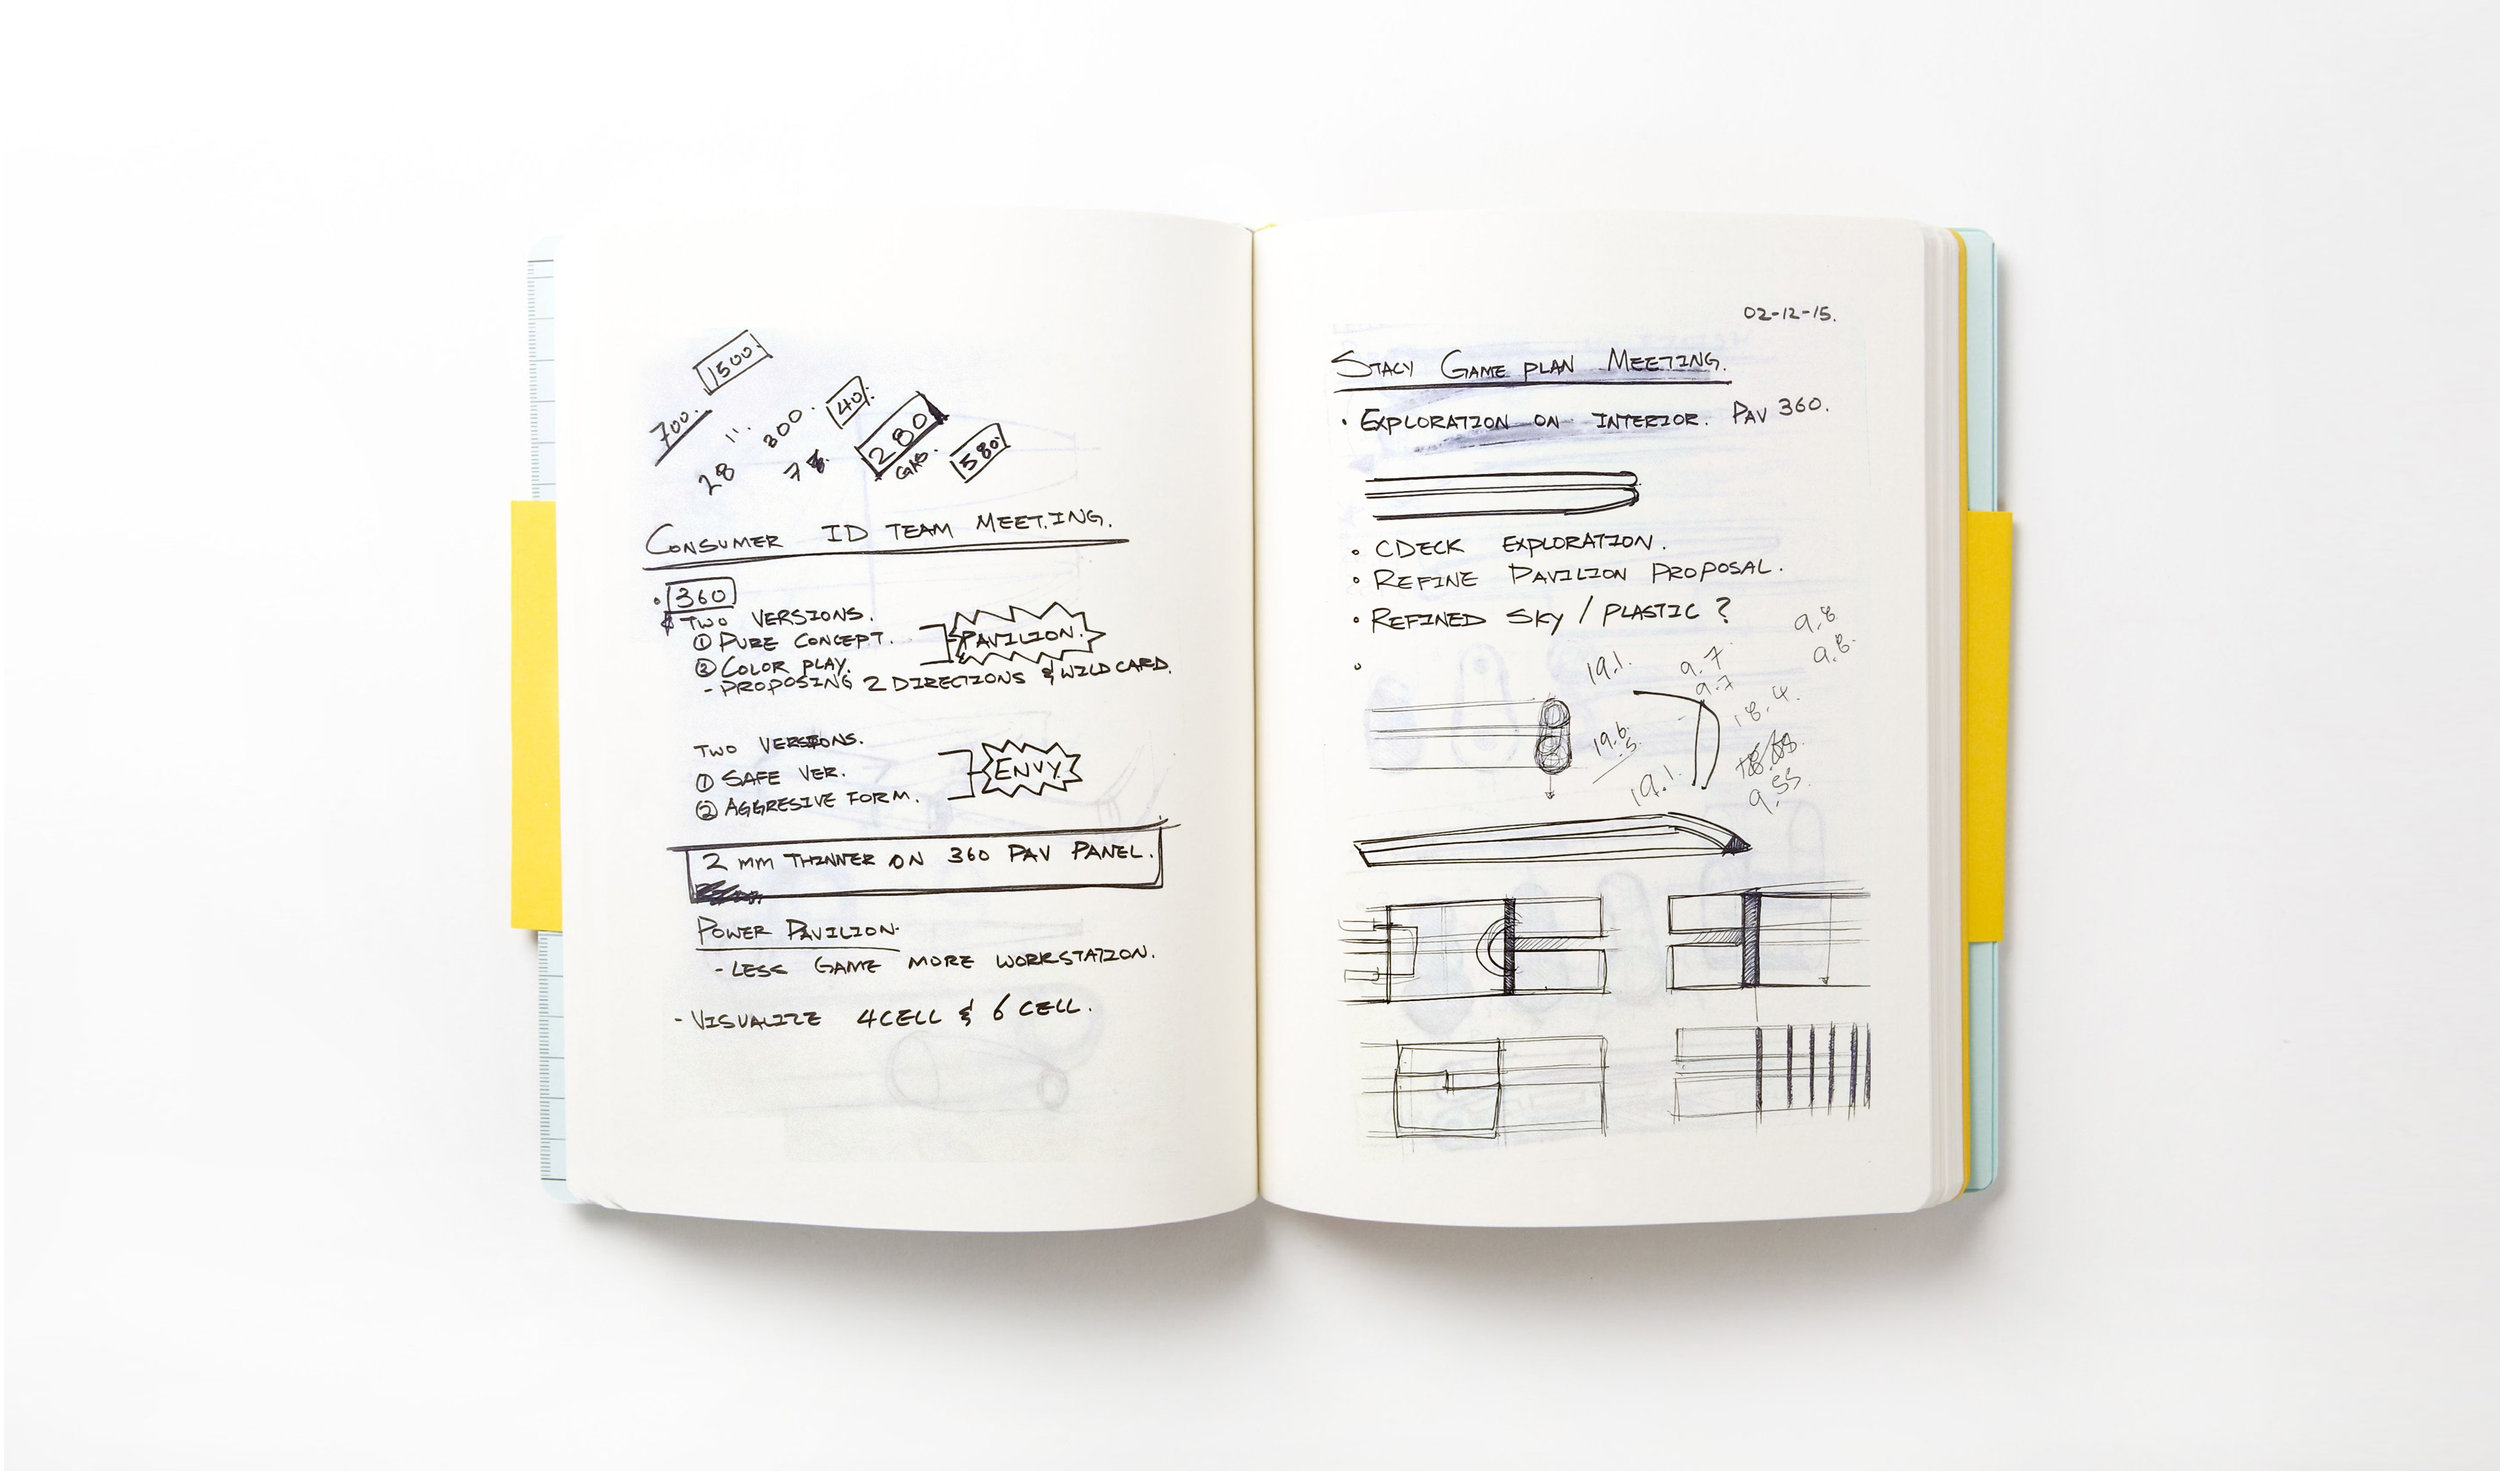 1500.
700.
11.
300.
40%
28
7
280
GAS.
580
CONSUMER ID TEAM MEETING.
• 360
TWO VERSIONS.
① PURE CONCEPT.
② COLOR PLAY.
PAVILION.
- PROPOSING 2 DIRECTIONS & WILD CARD.
TWO VERSIONS.
① SAFE VER.
② AGGRESIVE FORM.
ENVY.
2 MM THINNER ON 360 PAV PANEL.
POWER PAVILION.
- LESS GAME MORE WORKSTATION.
- VISUALIZE 4 CELL & 6 CELL.
02-12-15.
STACY GAME PLAN MEETING.
• EXPLORATION ON INTERIOR. PAV 360.
• CDECK EXPLORATION.
• REFINE PAVILION PROPOSAL.
• REFINED SKY / PLASTIC ?
9.8
9.8.
19.1.
9.7
9.7
18.4.
19.6.
.5
19.1.
9.55.